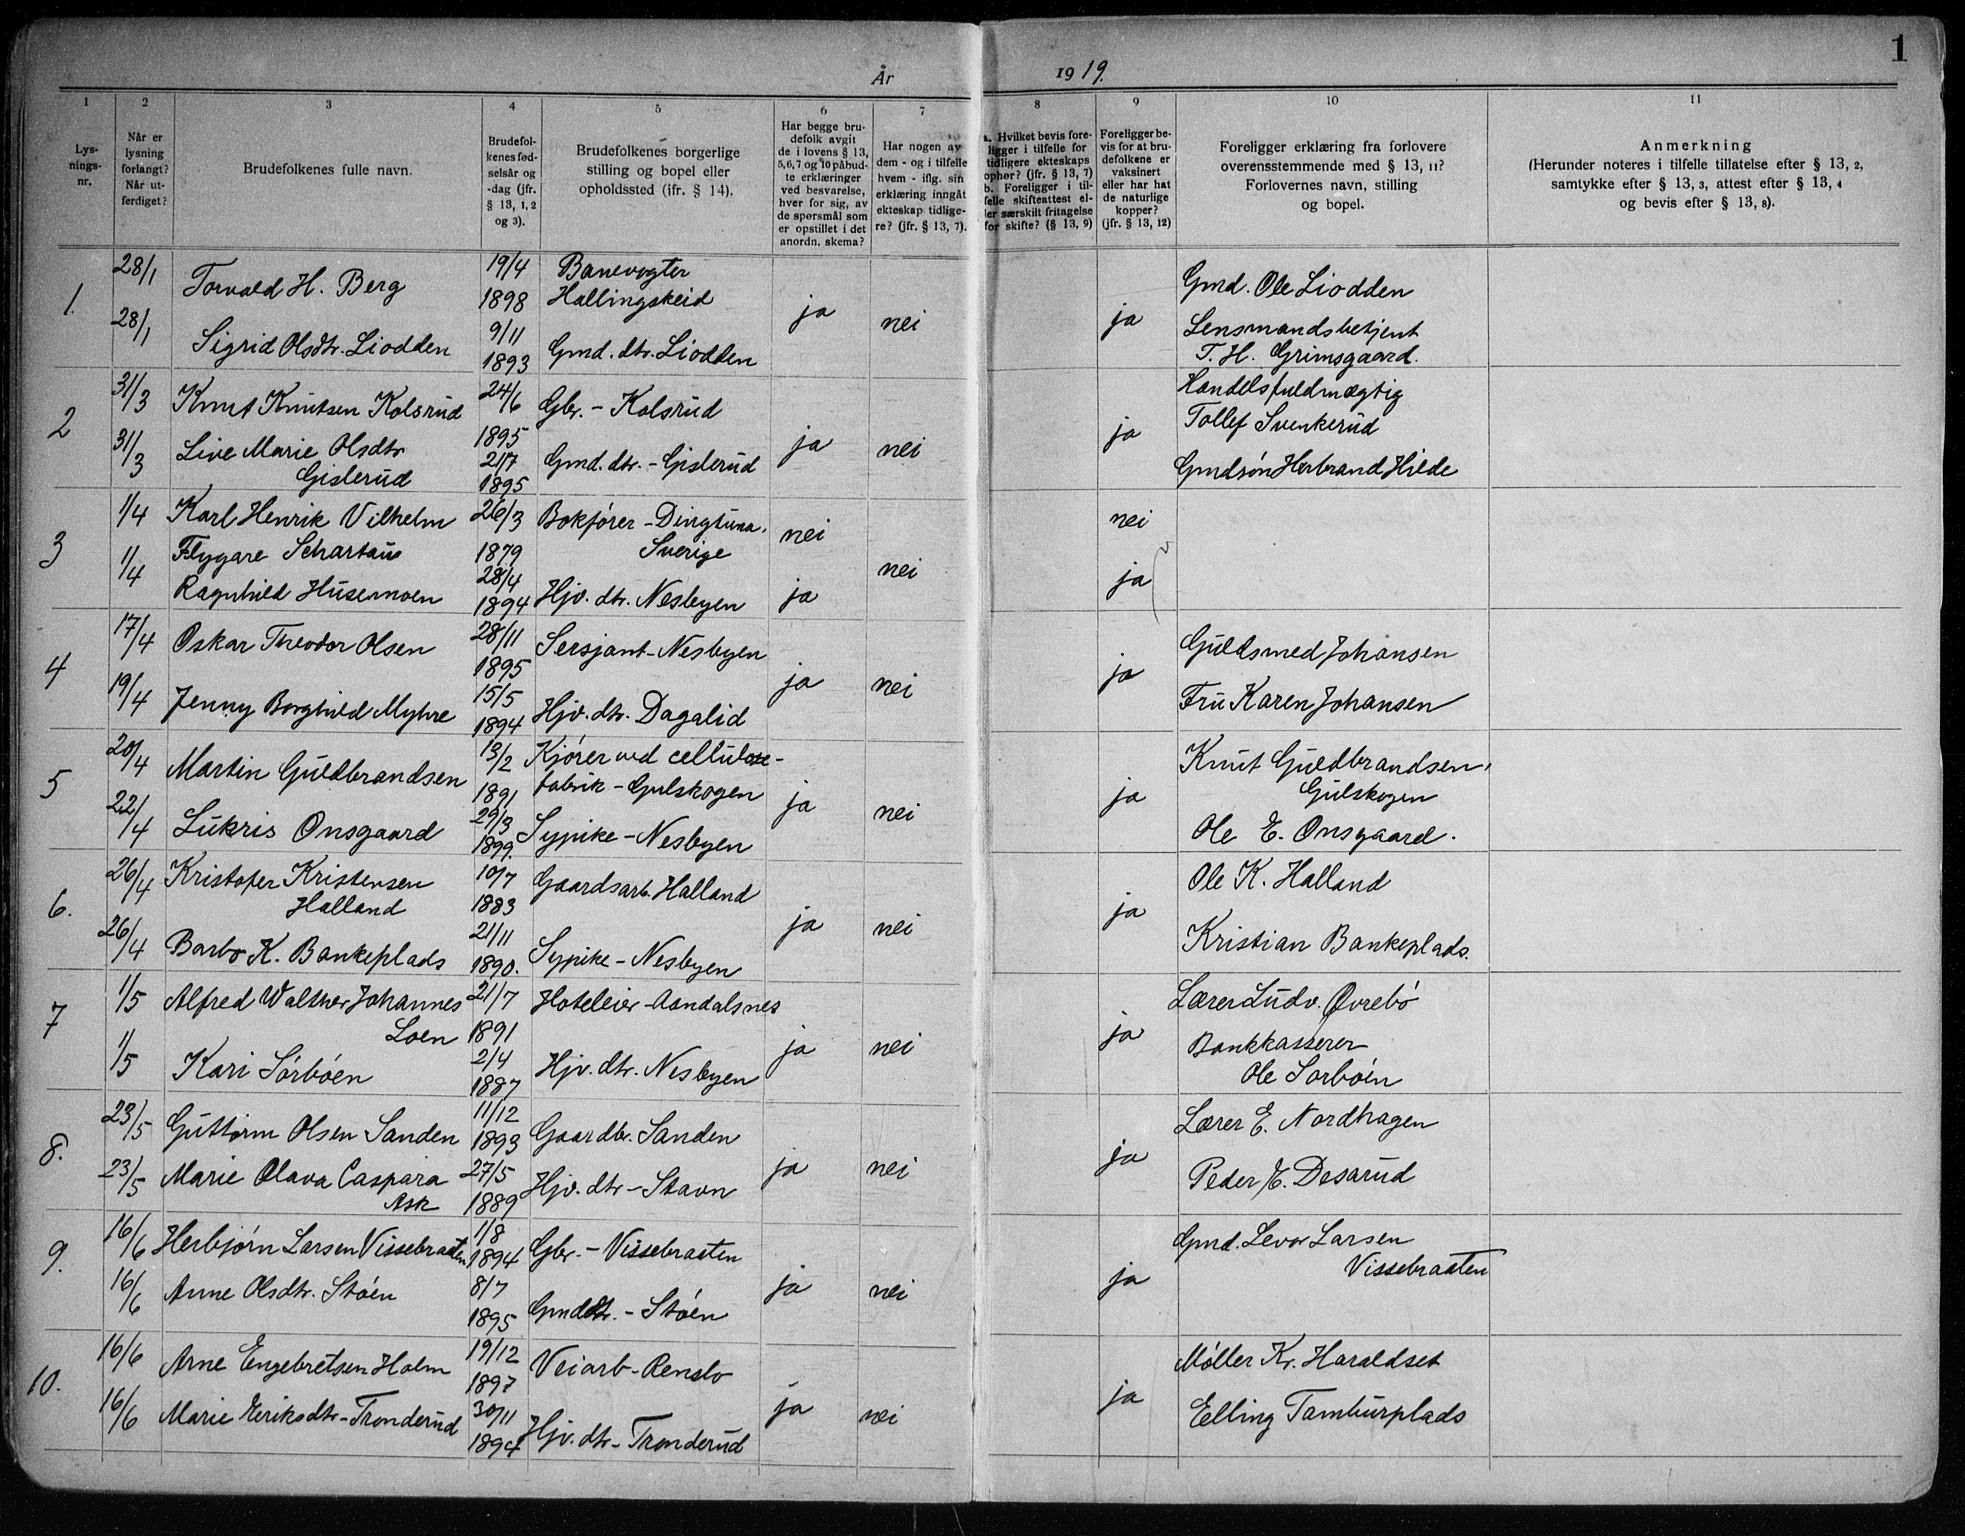 1
År 1919.
1 2 3 4 5 6 7 8 9 10 11
Lys-
nings-
nr.
Når er
lysning
forlangt?
Når ut-
ferdiget?
Brudefolkenes fulle navn.
Brudefol-
kenes fød-
selsår og
-dag (jfr.
§ 13, 1, 2
og 3).
Brudefolkenes borgerlige
stilling og bopel eller
opholdssted (ifr. § 14).
Har begge bru-
defolk avgit
de i lovens § 13,
5, 6, 7 og 10 påbud-
te erklæringer
ved besvarelse,
hver for sig, av
de spørsmål som
er opstillet i det
anordn. skema?
Har nogen av
dem - og i tilfelle
hvem - iflg. sin
erklæring inngåt
ekteskap tidlige-
re? (jfr. § 13, 7).
a. Hvilket bevis fore-
ligger i tilfelle for
tidligere ekteskaps
ophør? (jfr. § 13, 7)
b. Foreligger i til-
felle skifteattest el-
ler særskilt fritagelse
for skifte? (§ 13, 9)
Foreligger be-
vis for at bru-
defolkene er
vaksinert
eller har hat
de naturlige
kopper?
(jfr. § 13, 12)
Foreligger erklæring fra forlovere
overensstemmende med § 13, 11?
Forlovernes navn, stilling
og bopel.
Anmerkning
(Herunder noteres i tilfelle tillatelse efter § 13, 2,
samtykke efter § 13, 3, attest efter § 13, 4
og bevis efter § 13, 8).
1. 28/1 Torvald H. Berg 19/4 1898 Banevogter
Hallingskeid ja nei ja Gmd. Ole Liodden
28/1 Sigrid Olsdtr. Liodden 9/11 1893 Gmd. dtr. Liodden Lensmandsbetjent
T. H. Grimsgaard.
2 31/3 Knut Knutsen Kolsrud 24/6 1895 Gbr. - Kolsrud ja nei ja Handelsfuldmægtig
Tollef Svenkerud
31/3 Live Marie Olsdtr
Gislerud 21/7 1895 Gmd. dtr. - Gislerud Gmdsøn Herbrand Hilde
3 1/4 Karl Henrik Vilhelm
Flygare Schartau 26/3 1879 Bokfører - Dingtuna.
Sverige nei nei nei
1/4 Ragnhild Husemoen 28/4 1894 Hjv. dtr. Nesbyen ja ja
4 17/4 Oskar Theodor Olsen 28/11 1895 Sersjant - Nesbyen ja nei ja Guldsmed Johansen
19/4 Jenny Borghild Myhre 15/5 1894 Hjv. dtr. Dagalid Fru Karen Johansen
5 20/4 Martin Guldbrandsen 13/2 1891 Kjører ved cellulose-
fabrik - Gulskogen ja nei ja Knut Guldbrandsen,
Gulskogen
22/4 Lukris Onsgaard 29/3 1899. Sypike - Nesbyen Ole E. Onsgaard.
6. 26/4 Kristofer Kristensen
Halland 10/7 1883 Gaardsarb. Halland ja nei ja Ole K. Halland
26/4 Barbo K. Bankeplads 21/11 1890. Sypike - Nesbyen Kristian Bankeplads.
7 1/5 Alfred Walther Johannes
Loen 21/7 1891 Hoteleier - Aandalsnes ja nei ja Lærer Ludv. Øvrebø
1/5 Kari Sørbøen 2/4 1887 Hjv. dtr. Nesbyen Bankkasserer
Ole Sørbøen
8. 23/5 Guttorm Olsen Sanden 11/12 1893 Gaardbr. Sanden ja nei ja Lærer E. Nordhagen
23/5 Marie Olava Caspara
Ask 27/5 1889 Hjv. dtr - Stavn Peder E. Desarud
9. 16/6 Herbjørn Larsen Vissebraaten 1/8 1894 Gbr. - Vissebraaten ja nei ja Gmd. Levor Larsen
Vissebraaten
16/6 Anne Olsdtr. Støen 8/7 1895 Gmddtr. - Støen
10. 16/6 Arne Engebretsen Holm 19/12 1897 Veiarb - Renslo ja nei ja Møller Kr. Haraldset
16/6 Marie Eriksdtr - Tronderud 30/11 1894 Hjv. dtr - Tronderud Elling Tamburplads